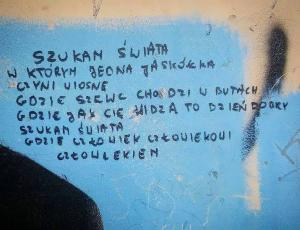 SZUKAM ŚWIATA
W KTÓRYM JEDNA JASKÓŁKA
CZYNI WIOSNĘ
GDZIE SZEWC CHODZI W BUTACH
GDZIE JAK CIĘ WIDZĄ TO DZIEŃ DOBRY
SZUKAM ŚWIATA
GDZIE CZŁOWIEK CZŁOWIEKOWI
CZŁOWIEKIEM